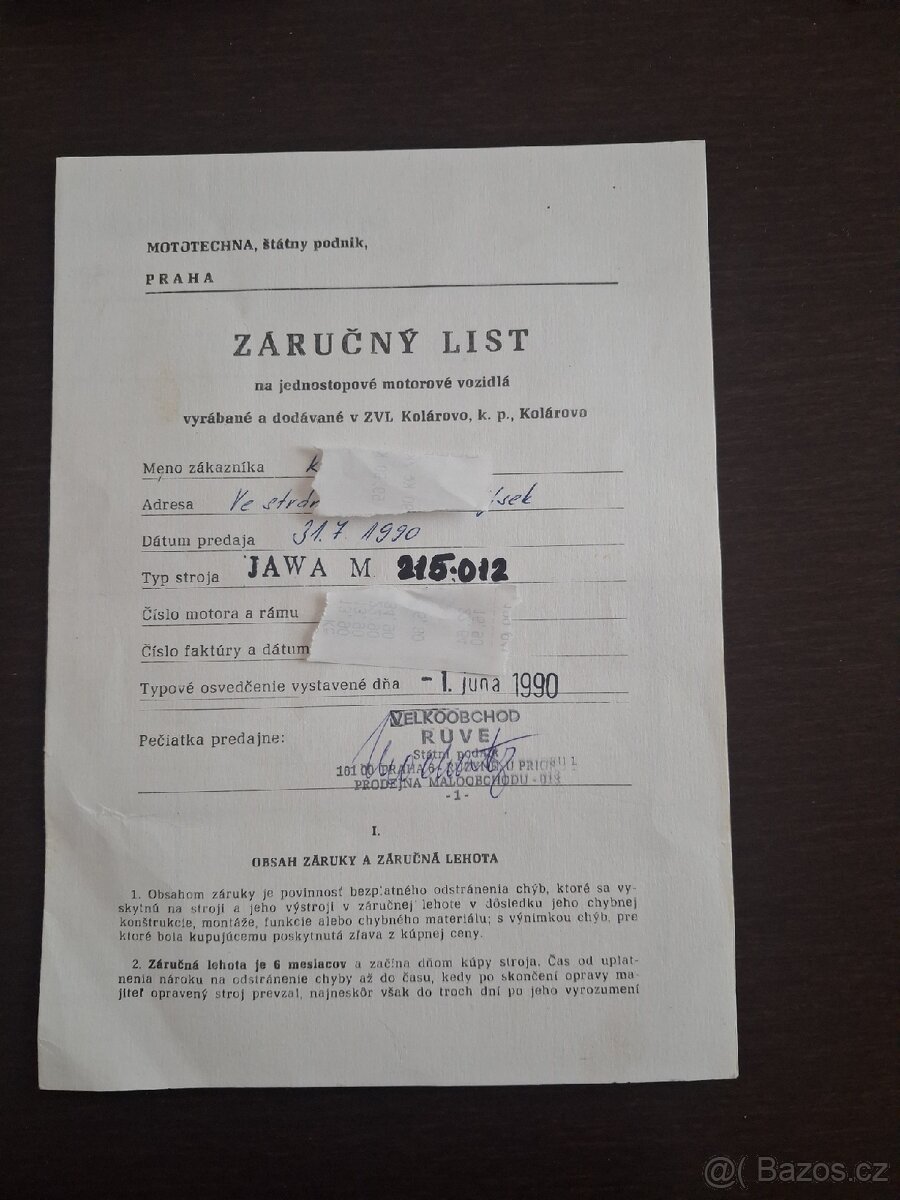 MOTOTECHNA, štátny podnik,
PRAHA
ZÁRUČNÝ LIST
na jednostopové motorové vozidlá
vyrábané a dodávané v ZVL Kolárovo, k. p., Kolárovo
Meno zákazníka
Adresa Ve
Dátum predaja 31.7. 1990
Typ stroja JAWA M 215.012
Číslo motora a rámu
Číslo faktúry a dátum
Typové osvedčenie vystavené dňa -1. júna 1990
VELKOOBCHOD
Pečiatka predajne: RUVE
Státní podnik
101 00 PRAHA
PRODEJNA MALOOBCHODU
-1-
I.
OBSAH ZÁRUKY A ZÁRUČNÁ LEHOTA
1. Obsahom záruky je povinnosť bezplatného odstránenia chýb, ktoré sa vy-
skytnú na stroji a jeho výstroji v záručnej lehote v dôsledku jeho chybnej
konštrukcie, montáže, funkcie alebo chybného materiálu; s výnimkou chýb, pre
ktoré bola kupujúcemu poskytnutá zľava z kúpnej ceny.
2. Záručná lehota je 6 mesiacov a začína dňom kúpy stroja. Čas od uplat-
nenia nároku na odstránenie chyby až do času, kedy po skončení opravy ma-
jiteľ opravený stroj prevzal, najneskôr však do troch dní po jeho vyrozumení
@( Bazos.cz